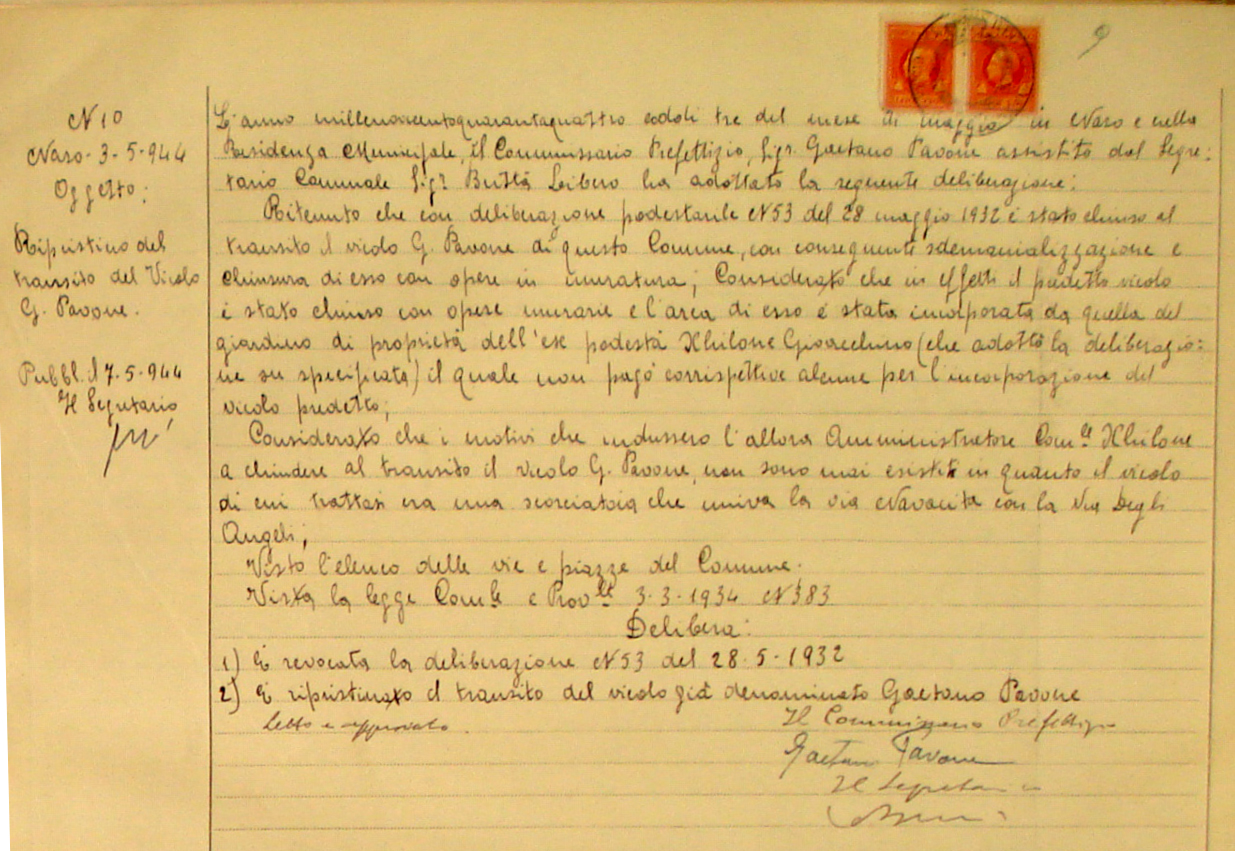 N 10
Naso - 3 - 5 - 944
Oggetto:
Ripristino del
transito del Vicolo
G. Pavone.
Pubbl. il 7.5-944
Il Segretario
L'anno millenovecentoquarantaquattro addì tre del mese di maggio in Naso e nella
Residenza Municipale, il Commissario Prefettizio, Sigr. Gaetano Pavone assistito dal Segre:
tario Comunale Sigr Buttà Libero ha adottato la seguente deliberazione:
Ritenuto che con deliberazione podestarile N53 del 28 maggio 1932 è stato chiuso al
transito il vicolo G. Pavone di questo Comune, con conseguente sdemanializzazione e
chiusura di esso con opere in muratura; Considerato che in effetti il predetto vicolo
è stato chiuso con opere murarie e l'area di esso è stata incorporata da quella del
giardino di proprietà dell'ex podestà Xhilone Gioacchino (che adottò la deliberazio:
ne su specificata) il quale non pagò corrispettivo alcuno per l'incorporazione del
vicolo predetto;
Considerato che i motivi che indussero l'allora Amministratore Com.le Xhilone
a chiudere al transito il vicolo G. Pavone, non sono mai esistiti in quanto il vicolo
di cui trattasi era una scorciatoia che univa la via Navacita con la Via Degli
Angeli;
Visto l'elenco delle vie e piazze del Comune.
Vista la legge Com.le e Prov.le 3-3-1934 N383
Delibera:
1) È revocata la deliberazione N53 del 28.5-1932
2) È ripristinato il transito del vicolo già denominato Gaetano Pavone
Letto e approvato.
Il Commissario Prefettizio
Gaetano Pavone
Il Segretario